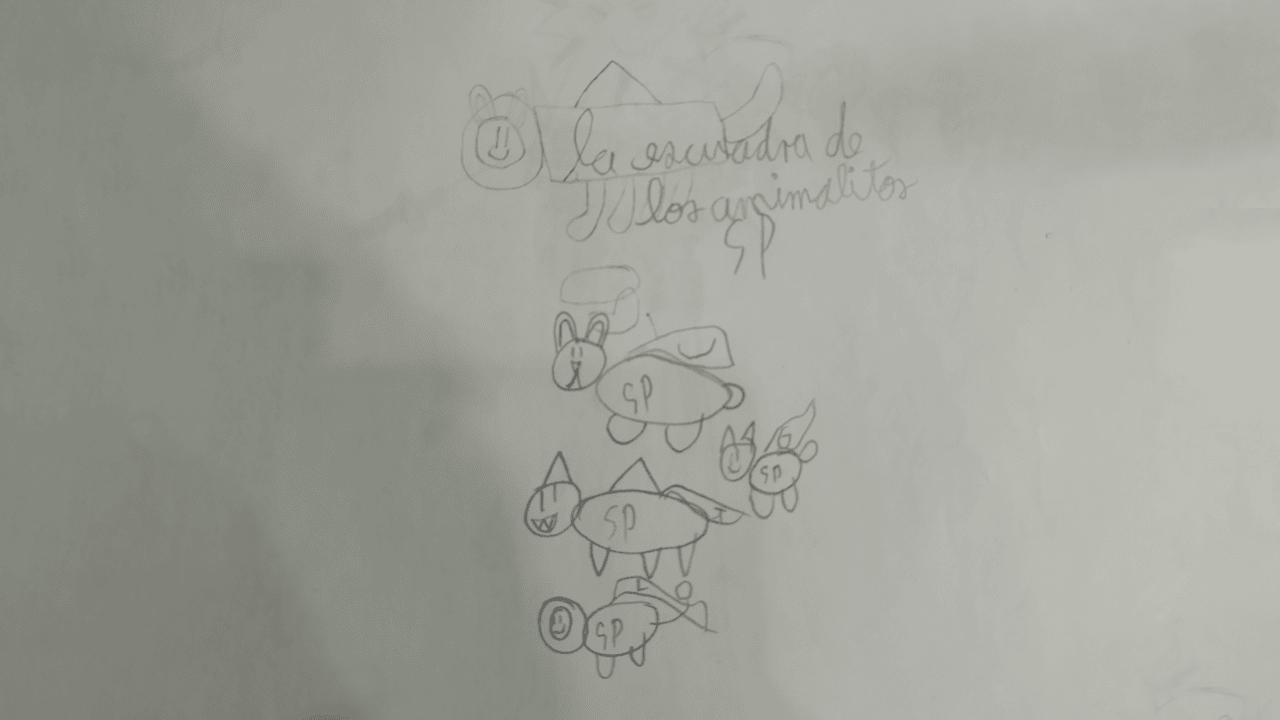 la escuadra de
los animalitos
SP
SP
G
SP
SP
L
SP